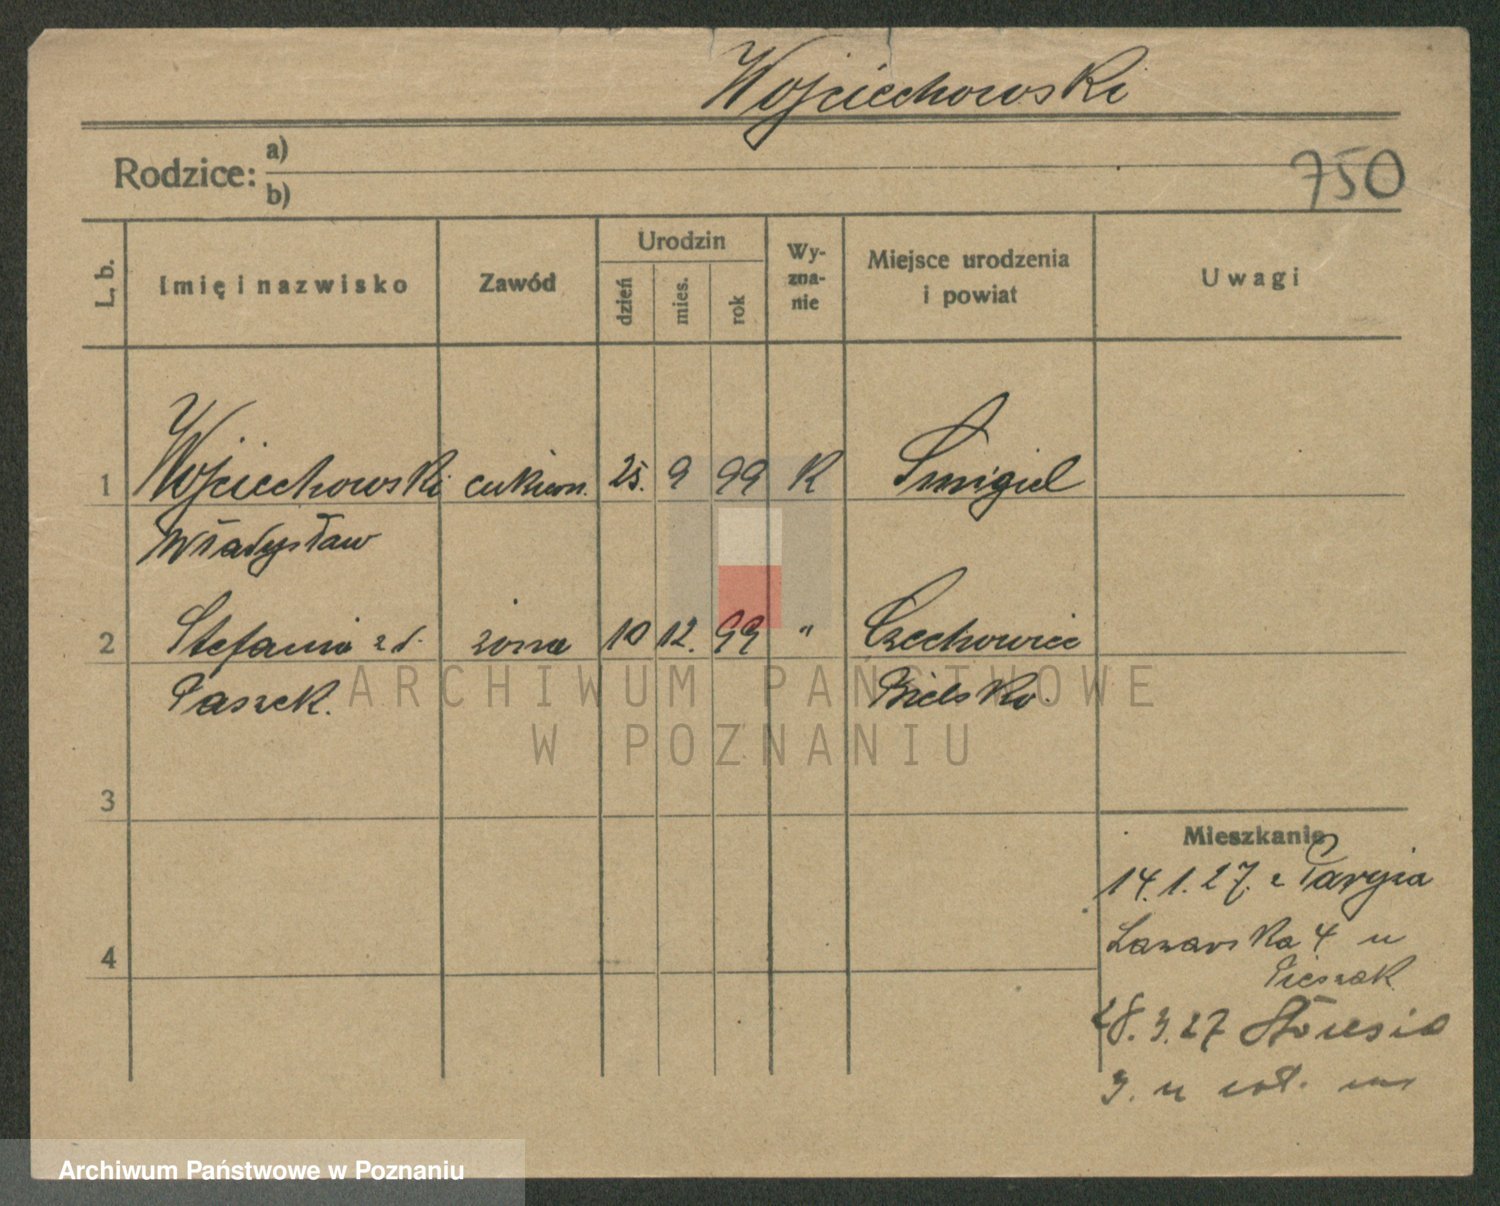 Wojciechowski
Rodzice: a)
b)
750
L. b.
Imię i nazwisko
Zawód
Urodzin
dzień
mies.
rok
Wy-
zna-
nie
Miejsce urodzenia
i powiat
Uwagi
1 Wojciechowski cukiern. 25. 9 99 K Śmigiel
Władysław
2 Stefania z d. żona 10 12. 99 " Czechowice
Paszek. Bielsko
3
Mieszkanie
14.1.27. z Paryża
Łazarska 4 u
4
28.3.27
3. u
ARCHIWUM PAŃSTWOWE
W POZNANIU
Archiwum Państwowe w Poznaniu